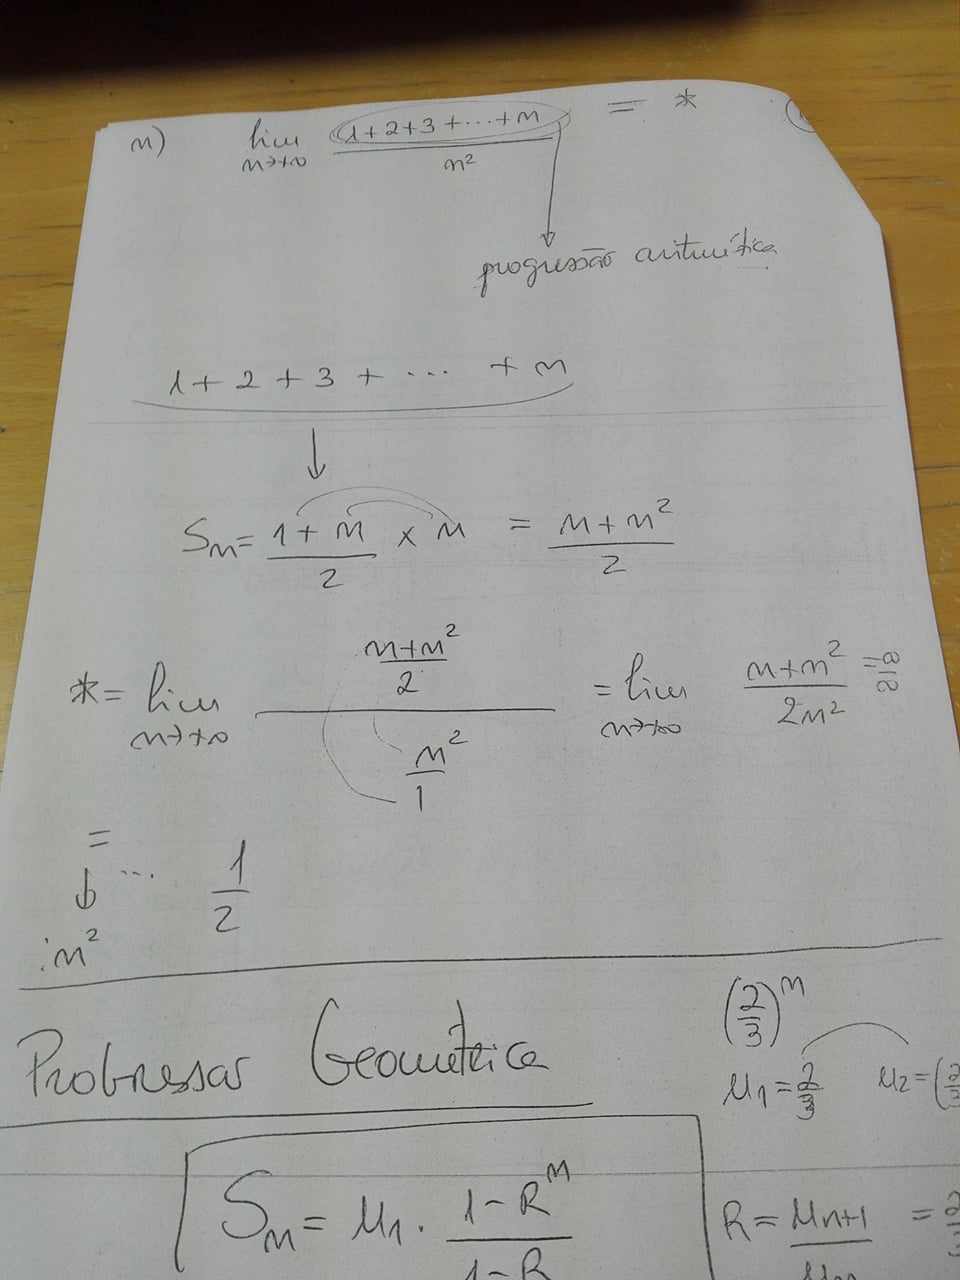 n) lim n→+∞ (1+2+3+...+n)/n² = *
progressão aritmética
1 + 2 + 3 + ... + n
↓
Sn = (1+n)/2 × n = (n+n²)/2
* = lim n→+∞ ((n+n²)/2)/(n²/1) = lim n→+∞ (n+n²)/(2n²) = ∞/∞
= ... 1/2
↓
:n²
(2/3)^n
Progressão Geométrica
u₁ = 2/3 u₂ = (2/3
Sn = u₁ . (1-R^n)/(1-R)
R = un+1/un =